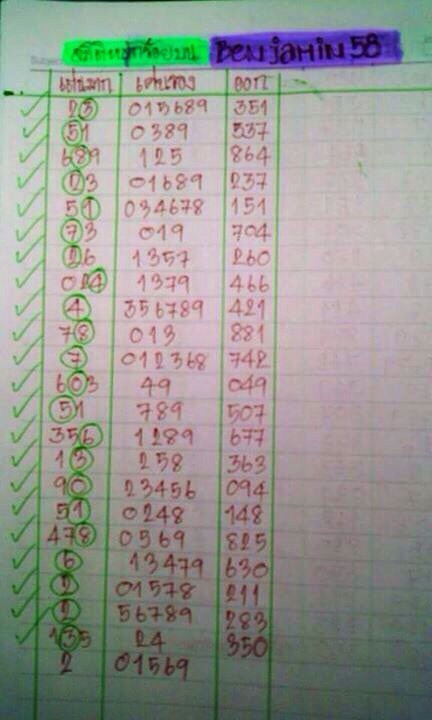 สถิติหลักร้อยบน Benjamin 58
เด่นมาก เด่นรอง ออก
23 015689 351
51 0389 537
689 125 864
23 01689 237
51 034678 151
73 019 704
26 1357 260
024 1379 466
4 356789 421
78 013 881
7 012368 742
603 49 049
51 789 507
356 1289 677
13 258 363
90 23456 094
51 0248 148
478 0569 825
6 13479 630
2 01578 211
2 56789 283
135 24 350
2 01569